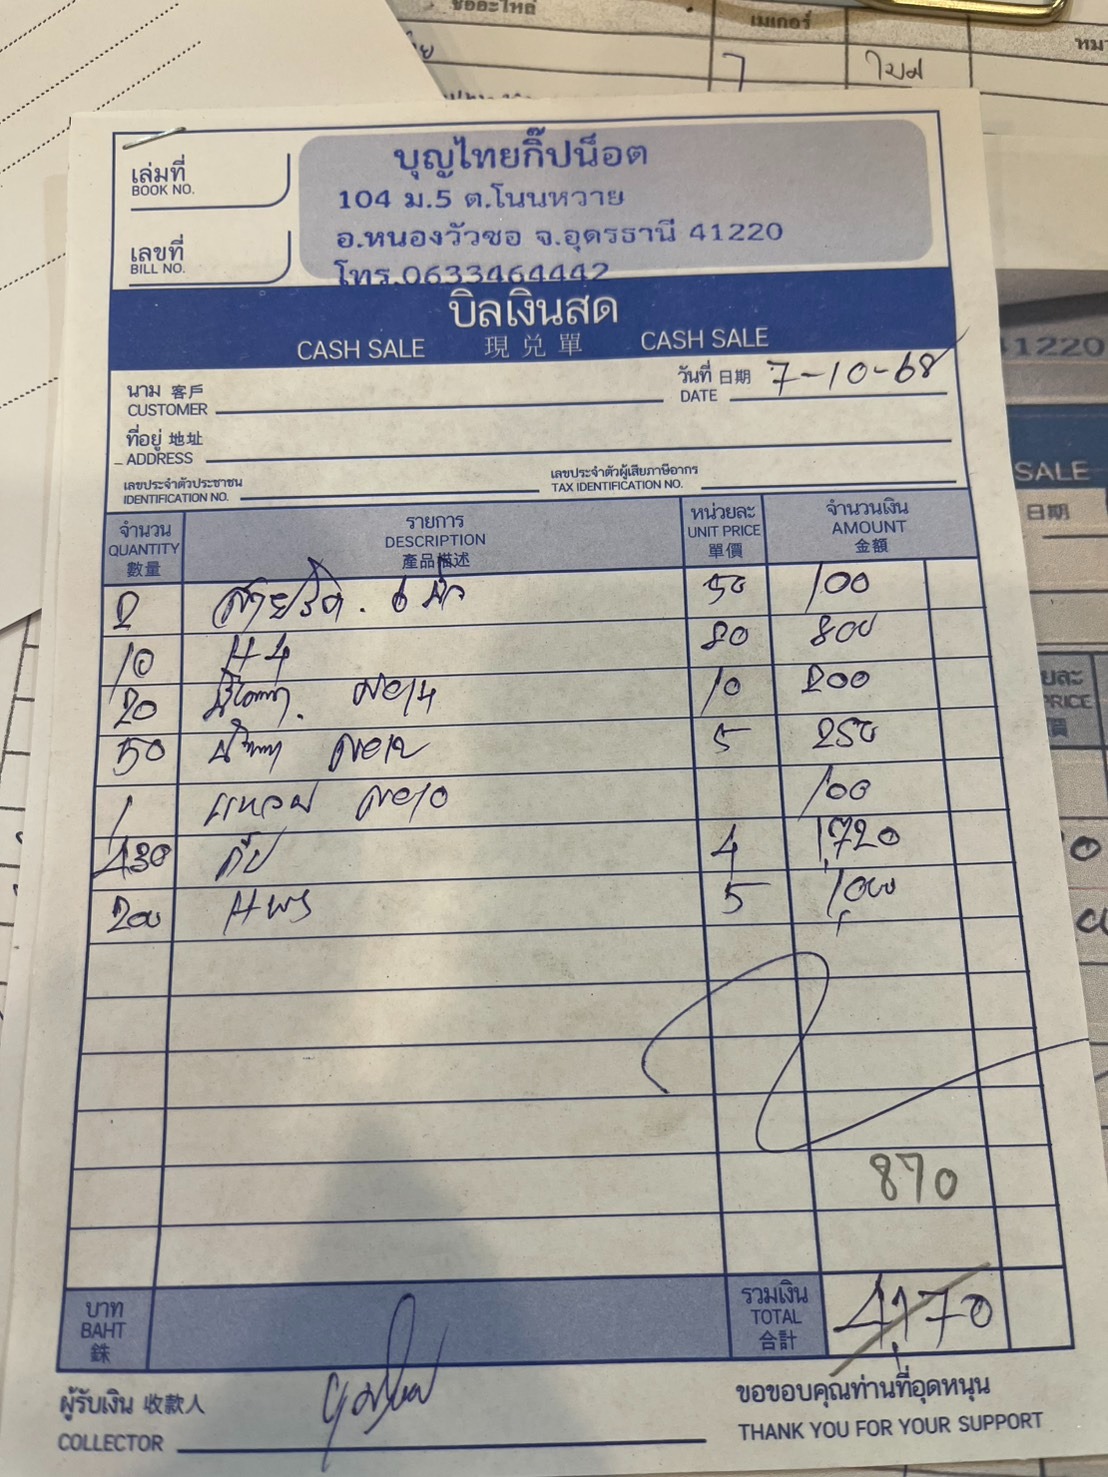 ชื่ออะไหล่ เมเกอร์
บุญไทยกิ๊ปน็อต
เล่มที่
BOOK NO.
104 ม.5 ต.โนนหวาย
อ.หนองวัวซอ จ.อุดรธานี 41220
เลขที่
BILL NO.
โทร.0633464442
บิลเงินสด
CASH SALE 現兌單 CASH SALE
นาม 客戶
CUSTOMER
วันที่ 日期
DATE 7-10-68
ที่อยู่ 地址
ADDRESS
เลขประจำตัวประชาชน
IDENTIFICATION NO.
เลขประจำตัวผู้เสียภาษีอากร
TAX IDENTIFICATION NO.
จำนวน รายการ หน่วยละ จำนวนเงิน
QUANTITY DESCRIPTION UNIT PRICE AMOUNT
數量 產品描述 單價 金額
2 สายรัด . 6 50 100
10 H4 80 800
20 เบอ14 10 200
50 เบอ12 5 250
1 แหวน เบอ10 100
430 กิ๊ป 4 1,720
200 5 1,000
870
บาท
BAHT
銖
รวมเงิน
TOTAL
合計
4,170
ผู้รับเงิน 收款人
COLLECTOR
ขอขอบคุณท่านที่อุดหนุน
THANK YOU FOR YOUR SUPPORT
41220
SALE
日期